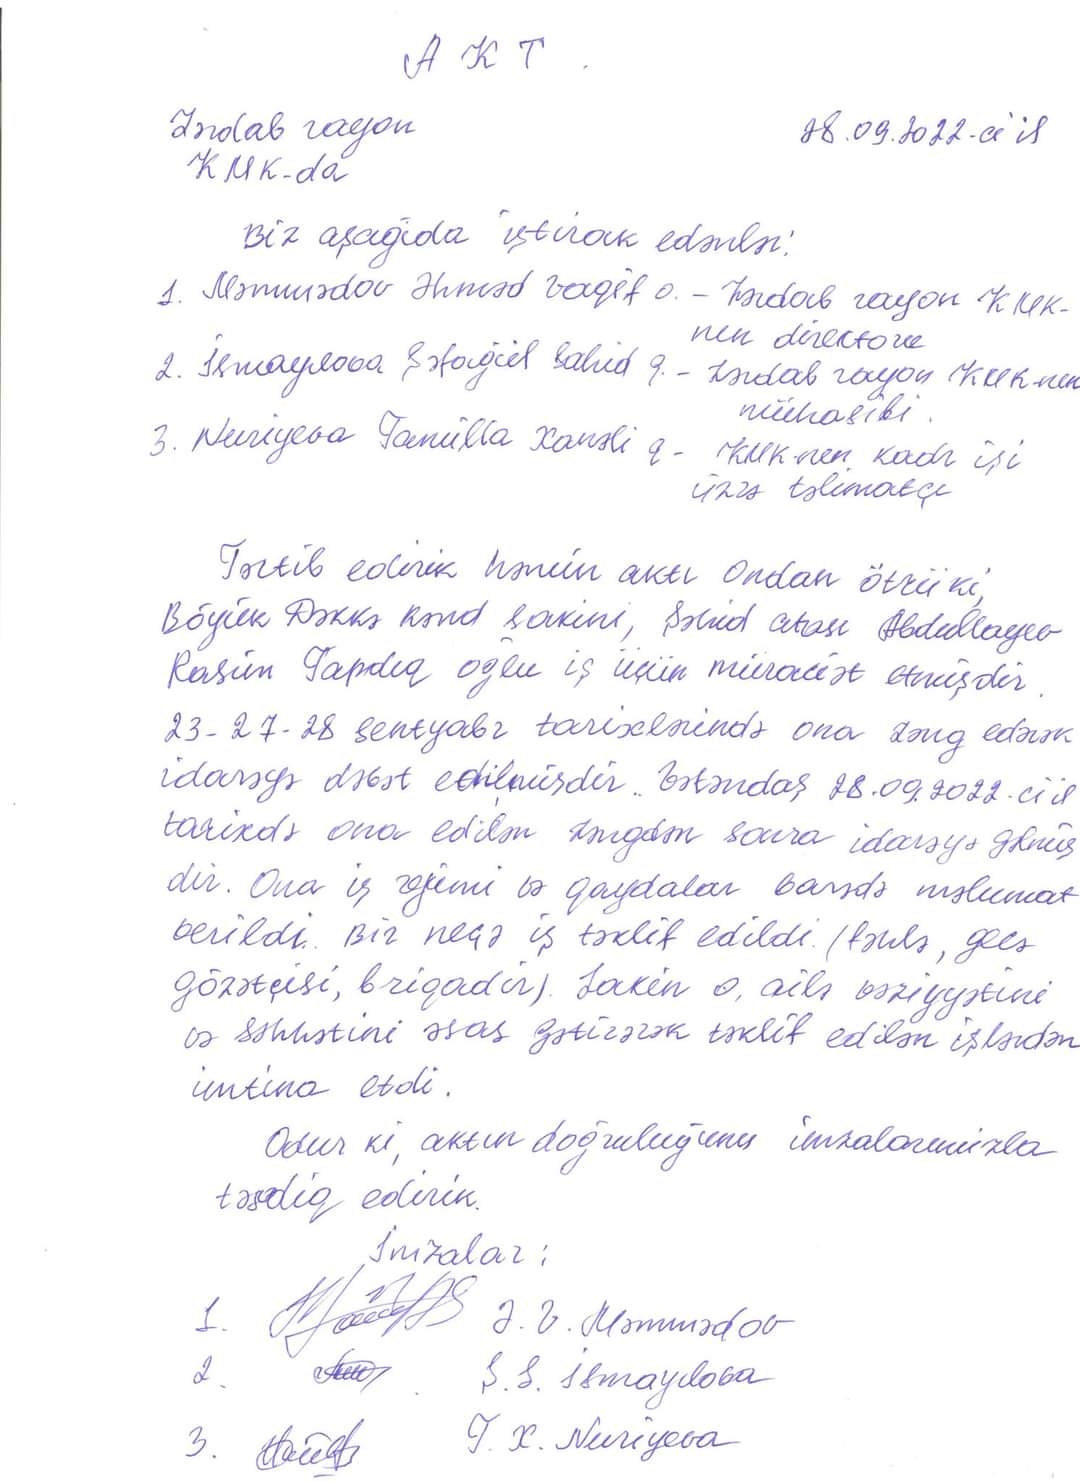 AKT.
Zərdab rayon
28.09.2022-ci il
KMK-da
Biz aşağıda iştirak edənlər:
1. Məmmədov Əhməd Vaqif o. – Zərdab rayon KMK-
nın direktoru
2. İsmayılova Şəfəgül Sahid q. – Zərdab rayon KMK-nın
mühasibi.
3. Nuriyeva Tamilla Xanəli q – KMK-nın kadr işi
üzrə təlimatçı
Tərtib edirik həmin aktı ondan ötrü ki,
Böyük Dəkkə kənd sakini, Şəhid atası Abdullayev
Rasim Tapdıq oğlu iş üçün müraciət etmişdir.
23-27-28 sentyabr tarixlərində ona zəng edərək
idarəyə dəvət edilmişdir. Vətəndaş 28.09.2022-ci il
tarixdə ona edilən zəngdən sonra idarəyə gəlmiş
dir. Ona iş rejimi və qaydalar barədə məlumat
verildi. Bir neçə iş təklif edildi. (fəhlə, gecə
gözətçisi, briqadir). Lakin o, ailə vəziyyətini
və səhhətini əsas gətirərək təklif edilən işlərdən
imtina etdi.
Odur ki, aktın doğruluğunu imzalarımızla
təsdiq edirik.
İmzalar:
1. Ə. V. Məmmədov
2. Ş. S. İsmayılova
3. T. X. Nuriyeva